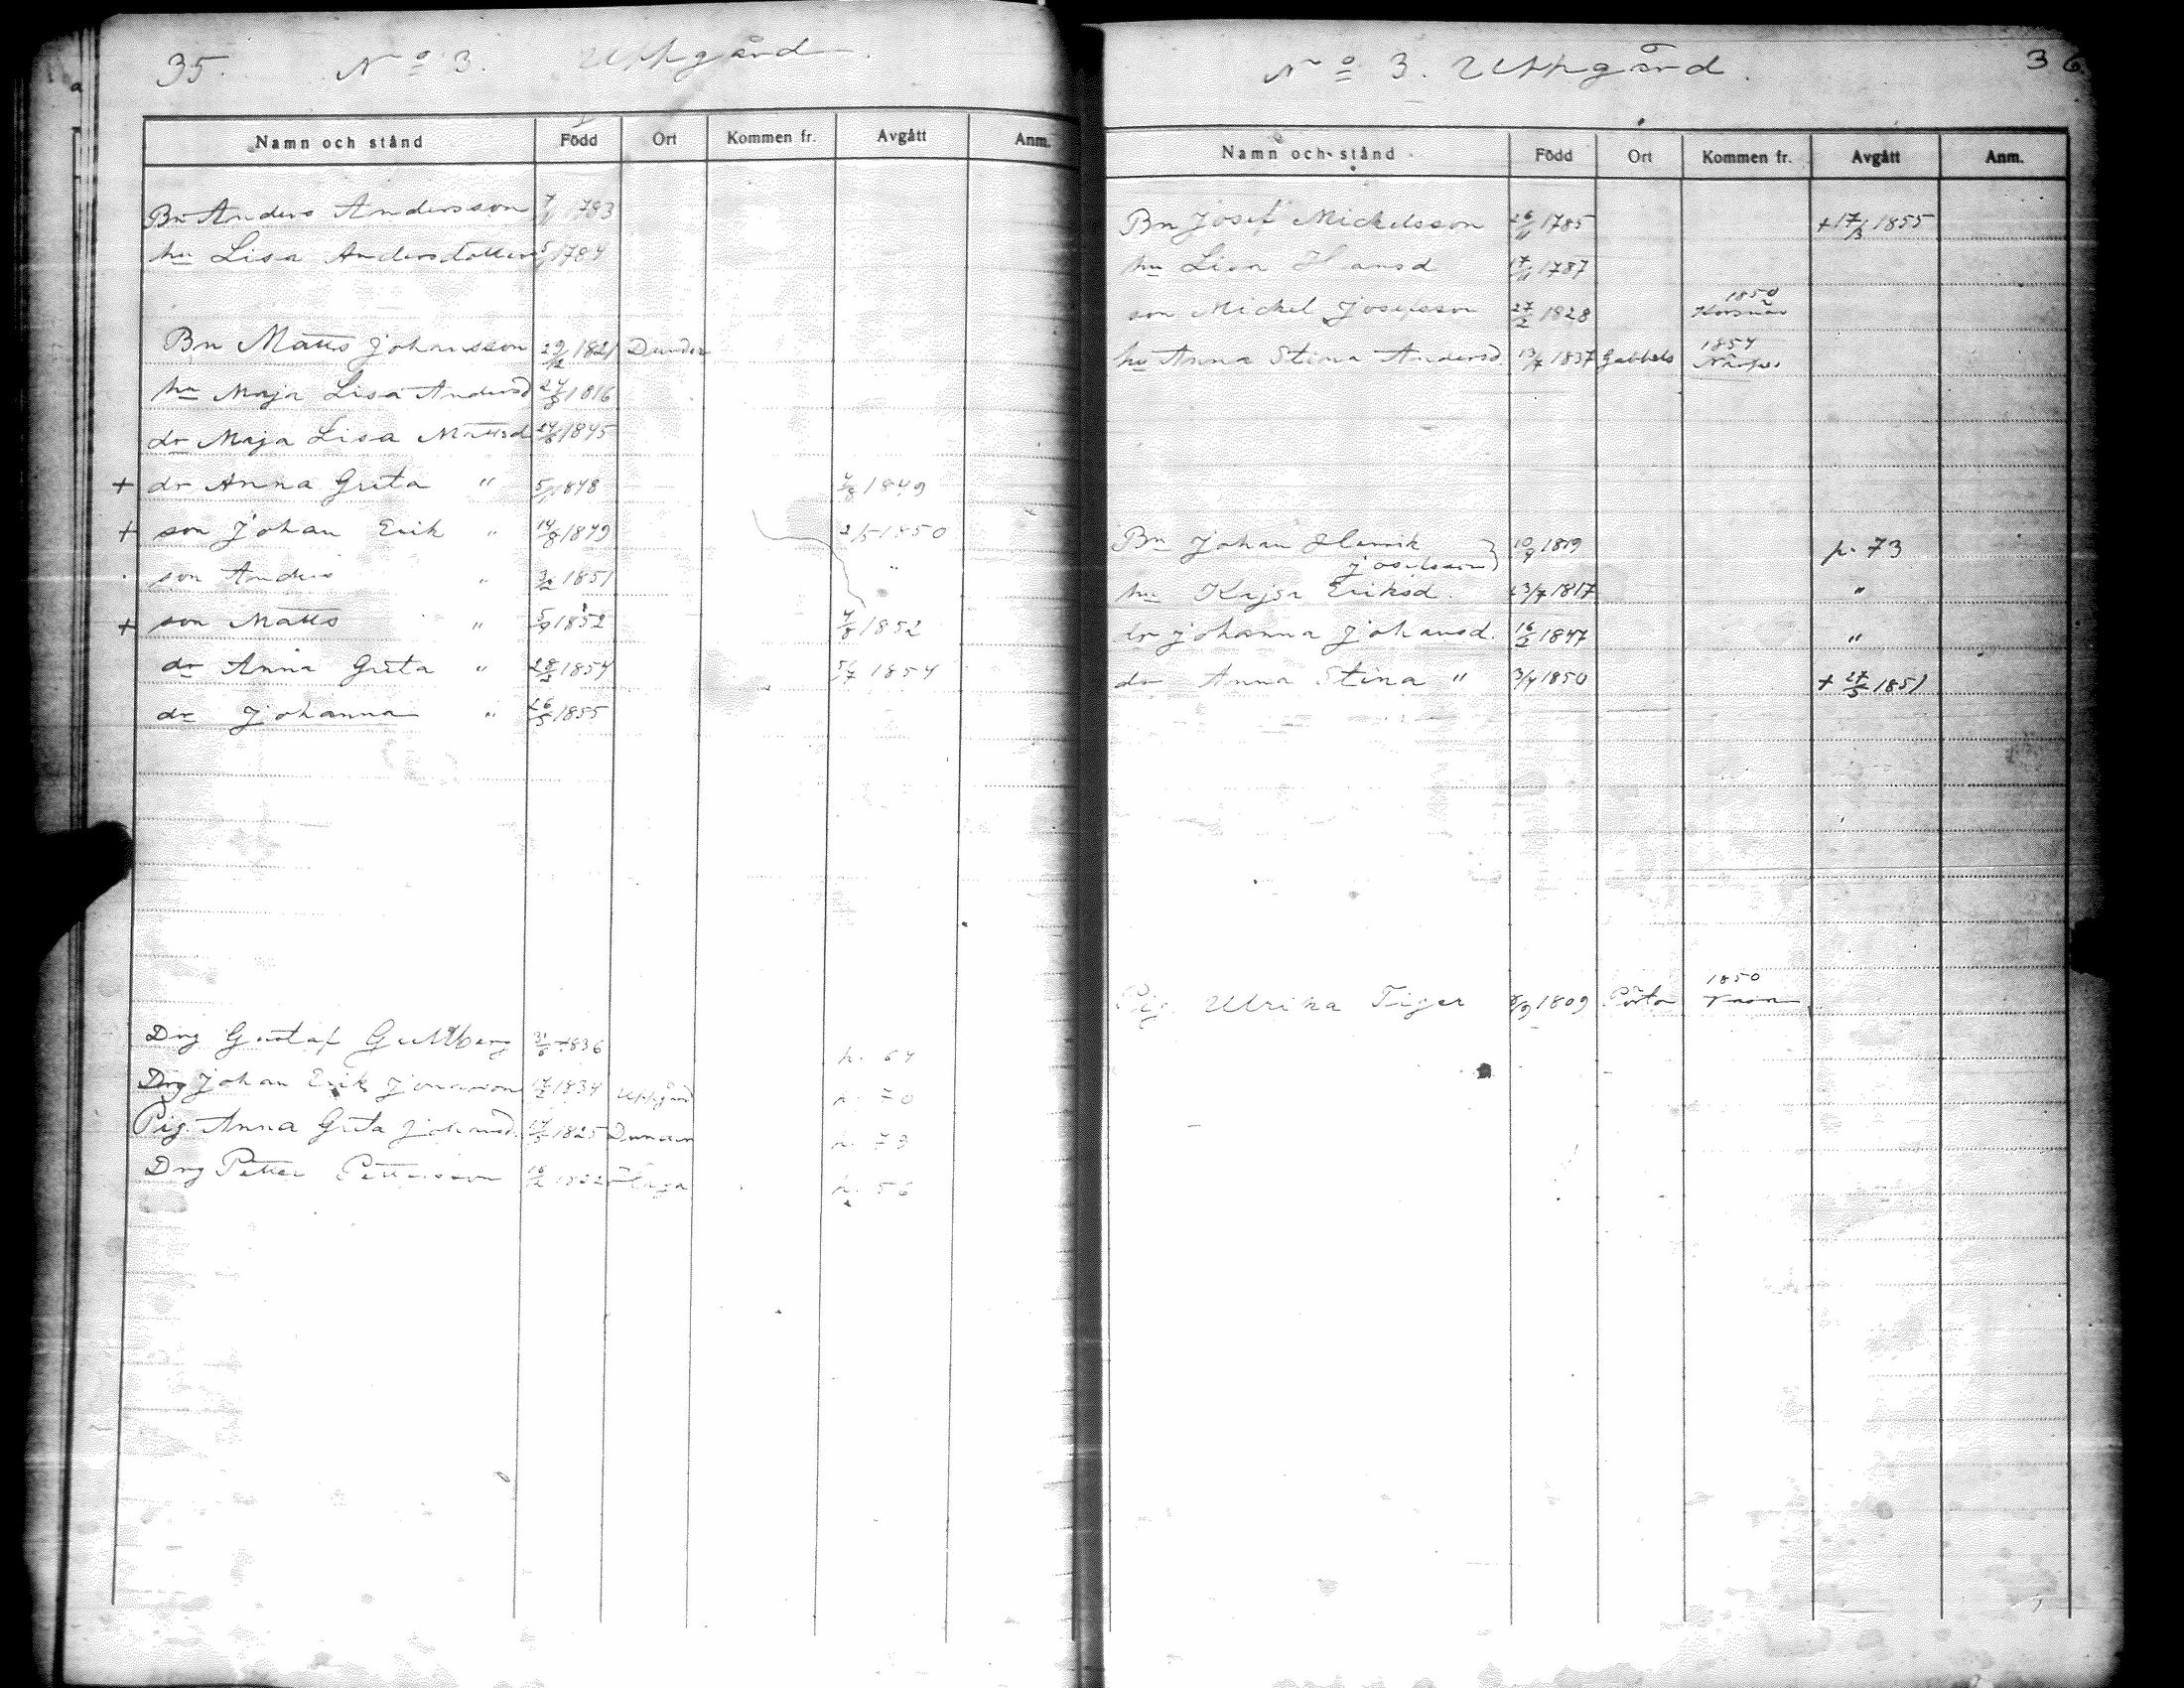 35. No 3. Uppgård.
Namn och stånd Född Ort Kommen fr. Avgått Anm.
Bn Anders Andersson 1783
hu Lisa Andersdotter 1784
Bn Matts Johansson 29/12 1821 Dunder
hu Maja Lisa Andersd 24/8 1816
dr Maja Lisa Mattsd 1845
+ dr Anna Greta " 1848 1849
+ son Johan Erik " 14/8 1849 2/5 1850
son Anders " 1851 "
+ son Matts " 1852 1852
dr Anna Greta " 1854 5/7 1854
dr Johanna " 26/5 1855
Drg Gustaf Gullberg 1836 p. 64
Drg Johan Erik 1834 Uppgård p. 70
Pig. Anna Greta Johansd. 1825 p. 73
Drg Petter Pettersson p. 56
No 3. Uppgård. 36.
Namn och stånd Född Ort Kommen fr. Avgått Anm.
Bn Josef Mickelsson 26/11 1785 + 17/3 1855
hu Lisa Hansd 17/11 1787
1850
son Mickel Josefsson 27/2 1828 Korsnäs
1854
hu Anna Stina Andersd. 13/7 1837 Gabbels Närpes
Bn Johan Henrik 10/9 1819 p. 73
Josefsson
hu Kajsa Eriksd. 23/7 1817 "
dr Johanna Johansd. 1847 "
dr Anna Stina " 3/4 1850 + 27/5 1851
1850
Pig. Ulrika Tiger 1809 Pörtom